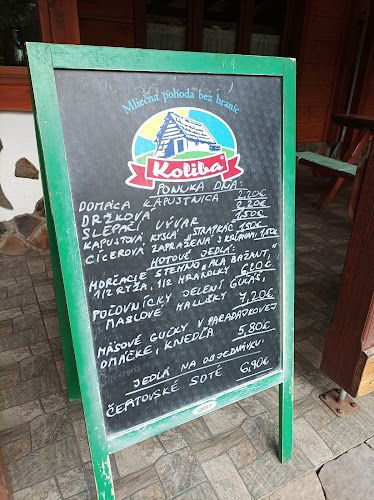 Mliečna pohoda bez hraníc
Koliba
PONUKA DŇA:
DOMÁCA KAPUSTNICA 2,20€
DRŽKOVÁ 2,20€
SLEPAČÍ VÝVAR 1,50€
KAPUSTOVÁ KYSLÁ „STRAPKÁČ" 1,50€
CÍCEROVÁ ZAPRAŽENÁ S 1,50€
HOTOVÉ JEDLÁ:
MORČACIE STEHNO „ALA BAŽANT,"
1/2 RYŽA, 1/2 HRANOLKY 6,20€
POĽOVNÍCKY JELENÍ GUĽÁŠ,
MASLOVÉ HALUŠKY 7,20€
MÄSOVÉ GUĽKY V PARADAJKOVEJ
OMÁČKE, KNEDĽA 5,80€
JEDLÁ NA OBJEDNÁVKU.
ČERTOVSKÉ SOTÉ 6,90€